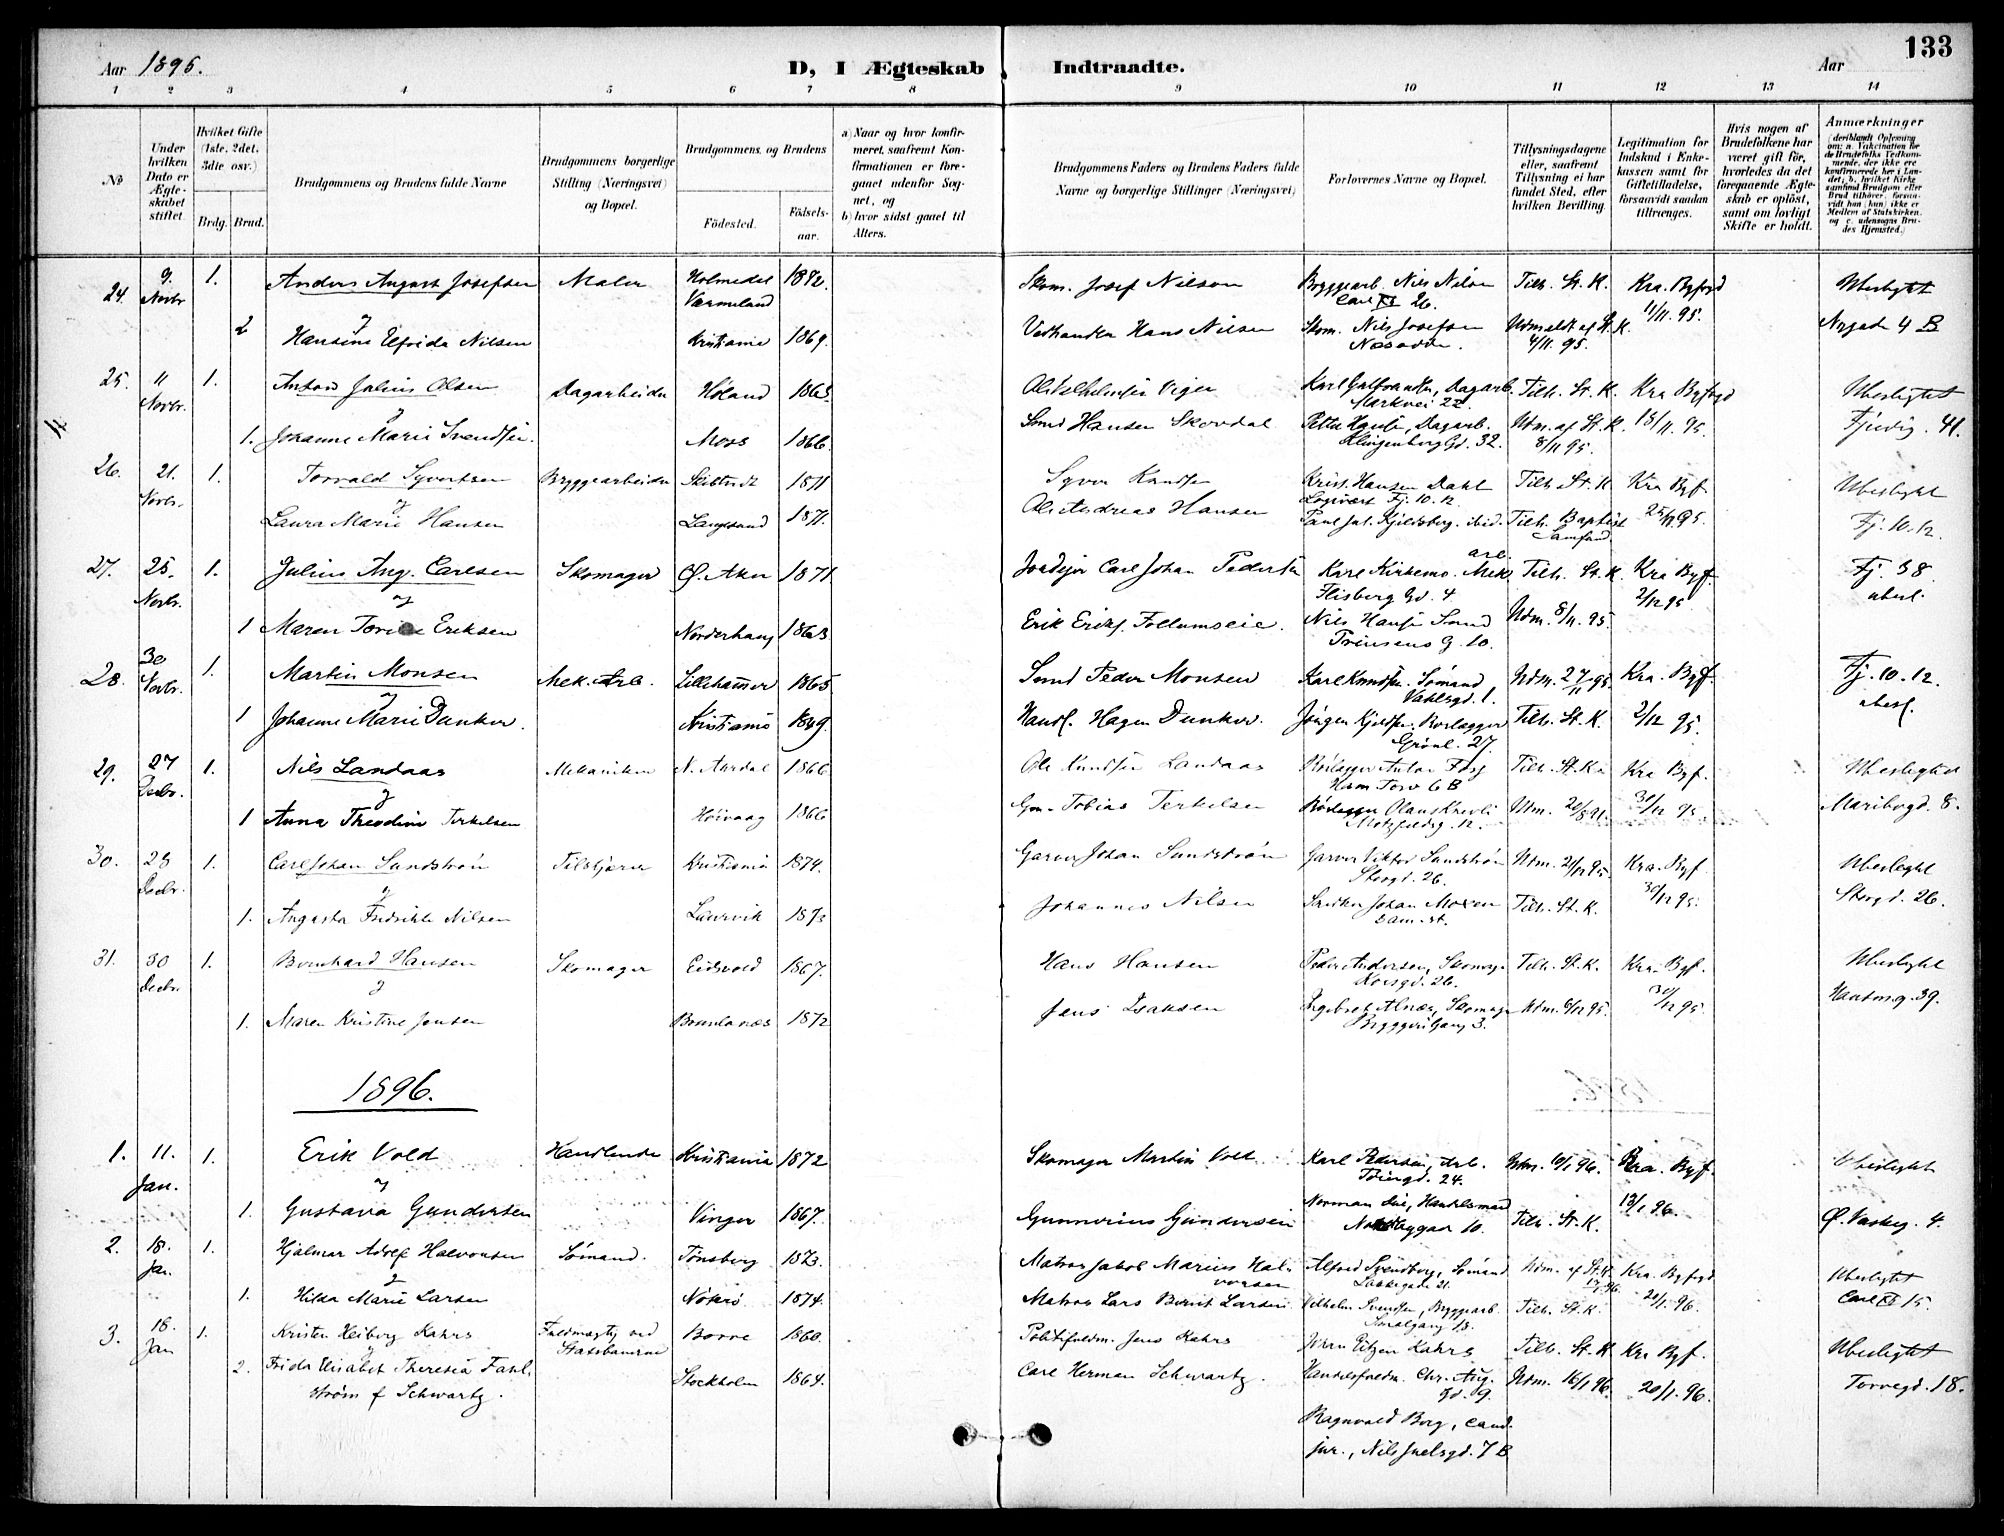 133
Aar 1895.
D, I Ægteskab Indtraadte.
Aar
1 2 3 4 5 6 7 8 9 10 11 12 13 14
No
Under hvilken Dato er Ægteskabet stiftet
Hvilket Gifte (1ste, 2det, 3die osv.)
Brdg. Brud.
Brudgommens og Brudens fulde Navne
Brudgommens borgerlige Stilling (Næringsvei) og Bopæl.
Brudgommens og Brudens
Fødested.
Fødselsaar.
a) Naar og hvor konfirmeret, saafremt Konfirmationen er foregaaet udenfor Sognet, og
b) hvor sidst gaaet til Alters.
Brudgommens Faders og Brudens Faders fulde Navne og borgerlige Stillinger (Næringsvei)
Forlovernes Navne og Bopæl.
Tillysningsdagene eller, saafremt Tillysning ei har fundet Sted, efter hvilken Bevilling.
Legitimation for Indskud i Enkekassen samt for Giftetilladelse, forsaavidt saadan tiltrænges.
Hvis nogen af Brudefolkene har været gift før, hvorledes da det foregaaende Ægteskab er opløst, samt om lovligt Skifte er holdt.
Anmærkninger
24. 9. Novbr 1. Anders August Josefsen Maler Holmedal Værmeland 1872. Skom. Josef Nilson Byggearb. Nils Nilsen Carl XI 26. Tilh. St. K. Kra. Byfogd 11/11. 95. Ubeslegtet
&
2 Hansine Elfrida Nilsen Kristiania 1869. Vedhandler Hans Nilsen Skom. Nils Josefsen Næsodden. Udmeldt af St. K. 4/11. 95. Nygade 4 B
25. 11 Novbr. 1. Anton Julius Olsen Dagarbeider Høland 1863. Markvei 22. Tilh. St. K. Kra Byfogd Ubeslegtet
&
1. Johanne Marie Svendsen. Moss 1866. Smed Hansen Skovdal Petter Hansen, Dagarb. Klingenberg Gd. 32. Udm. af St. K. 8/11 95. 18/11. 95. Fjerdig. 41.
26. 21. Novbr. 1. Torvald Syvertsen Bryggearbeider 1871 Syver Knudsen Krist. Hansen Dahl Fj. 10.12 Tilh. St. K Kra Byf Ubeslegtet
&
Laura Marie Hansen Langesund 1871. Ole Andreas Hansen ibid. Tilh. Baptist Samfund 25/11 95. Fj. 10.12.
27. 25. Novbr. 1. Julius Aug. Carlsen Skomager Ø. Aker 1871 Carl Johan Pedersen Karl Kirkemo. Mek. arb. Flisberg Gd. 4 Tilh. St. K. Kra Byf. 2/12 95 Fj. 38 ubesl.
&
1 Maren Eriksen Norderhaug 1863 Erik Eriks. Follumseie. Nils Hansen Smed Trondsens G. 10. Udm. 8/11. 95.
28. 30 Novbr. 1. Martin Monsen Mek. Arb. Lillehammer 1865 Smed Peder Monsen Karl Knudsen. Sømand Vahlsgd. 1. Udm. 27/11 95 Kra. Byf. Fj. 10.12. ubesl.
&
1 Johanne Marie Dunker. Kristiania 1849. Handl. Hagen Dunker. Jørgen Grønl. 27. Tilh. St. K. 2/12 95.
29. 27 Decbr. 1. Nils Landaas Mekaniker N. Aurdal 1866 Ole Knudsen Landaas Rørlægger Anton Foss Ham. Torv 6 B Tilh. St. K. Kra Byf. Ubeslegted
&
1 Anna Theodine Terkelsen Høivaag 1866 Tobias Terkelsen Motzfeldtsg. 12. Udm. 20/8 91. 30/12 95. Maribogd. 8.
30. 28 Decbr. 1. Carl Johan Sundstrøm Filskjærer Kristiania 1874. Garver Johan Sundstrøm Garver Viktor Sundstrøm Storgd. 26. Udm. 21/12 95. Kra. Byf. Ubeslegtet
&
1. Augusta Fredrikke Nilsen Laurvik 1873 Johannes Nilsen Snedker Johan Moren Damst. Tilh. St. K. 30/12 95. Storgd. 26.
31. 30 Decbr. 1. Bernhard Hansen Skomager Eidsvold 1867. Hans Hansen Peder Andersen, Skomager Korsgd. 26. Tilh. St. K. Kra. Byf. Ubeslegtet
&
1. Maren Kristine Jensen Brunlanæs 1872 Jens Isaksen Ingebret Alnæs, Skomager Bryggerigang 3. Udm. 6/12 95. 30/12 95 Hausmg. 39.
1896.
1. 11. Jan. 1. Erik Vold Handlende Kristiania 1872 Skomager Martin Vold Karl Pedersen, Arb. Tøiengd. 24. Udm. 10/1 96. Kra. Byf. Ubeslegtet
&
1. Gustava Gundersen Vinger 1867. Gunnerius Gundersen Norman Lie, Handelsmand Nordbygad 10. Tilh. St. K. 13/1 96. Ø. Vaskeg. 4.
2. 18. Jan. 1. Hjalmar Adolf Halvorsen Sømand. Tønsberg 1873. Matros Jakob Marius Halvorsen Alfred Svendborg, Sømand Lakkegade 21. Udm. af St. K. 17/1 96. Kra. Byfogd Ubeslegtet
&
1. Hilda Marie Larsen Nøterø 1874. Matros Lars Bernt Larsen Vilhelm Svendsen, Byggearb. Smalgang 13. Tilh. St. K. 20/1. 96. Carl XI 15.
3. 18. Jan 1. Kristen Heiberg Kahrs Fuldmægtig ved Statsbanerne Borre 1860. Politifuldm. Jens Kahrs Johan Pitzen Kahrs Tilh. St. K Kra Byf. Ubeslegtet
&
2. Frida Elisabet Theresia Fahlstrøm f Schwartz. Stockholm 1864. Carl Herman Schwartz. Handelsfuldm. Chr. Aug. Gd. 9. Udm. 16/1 96. 20/1. 96. Torvegd. 18.
Ragnvald Borg, cand. jur., Nils Juelsgd. 7 B